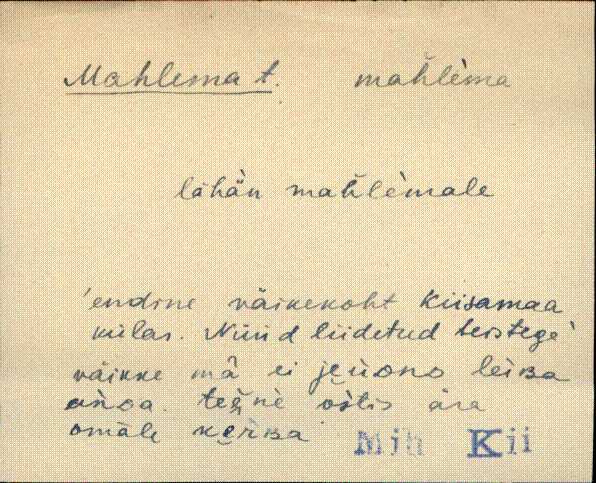 Mahlema t. mah̆lèma
lähän mah̆lèmale
'endine väikekoht Kiisamaa
külas. Nüüd liidetud teistega'
väikke mā ei jeùono leìba
añoa. tešnè ostis ära
omàle keřba
Mih Kii